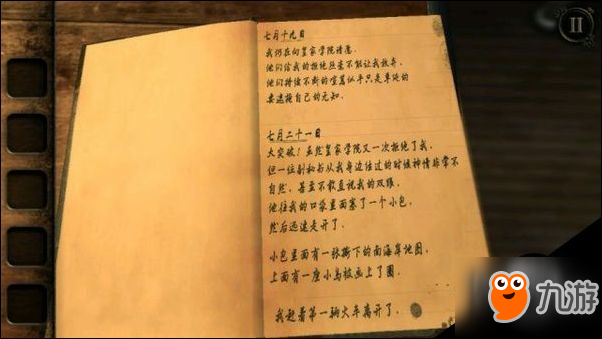 七月十九日
我仍在向皇家学院请愿。
他们给我的拒绝丝毫不能让我放弃。
他们持续不断的喧嚣似乎只是单纯的
要遮掩自己的无知。
七月二十一日
大突破！虽然皇家学院又一次拒绝了我，
但一位副秘书从我身边经过的时候神情非常不
自然，甚至不敢直视我的双眼。
他往我的口袋里面塞了一个小包，
然后迅速走开了。
小包里面有一张撕下的南海岸地图，
上面有一座小岛被画上了圈。
我赶着第一辆火车离开了。
九游